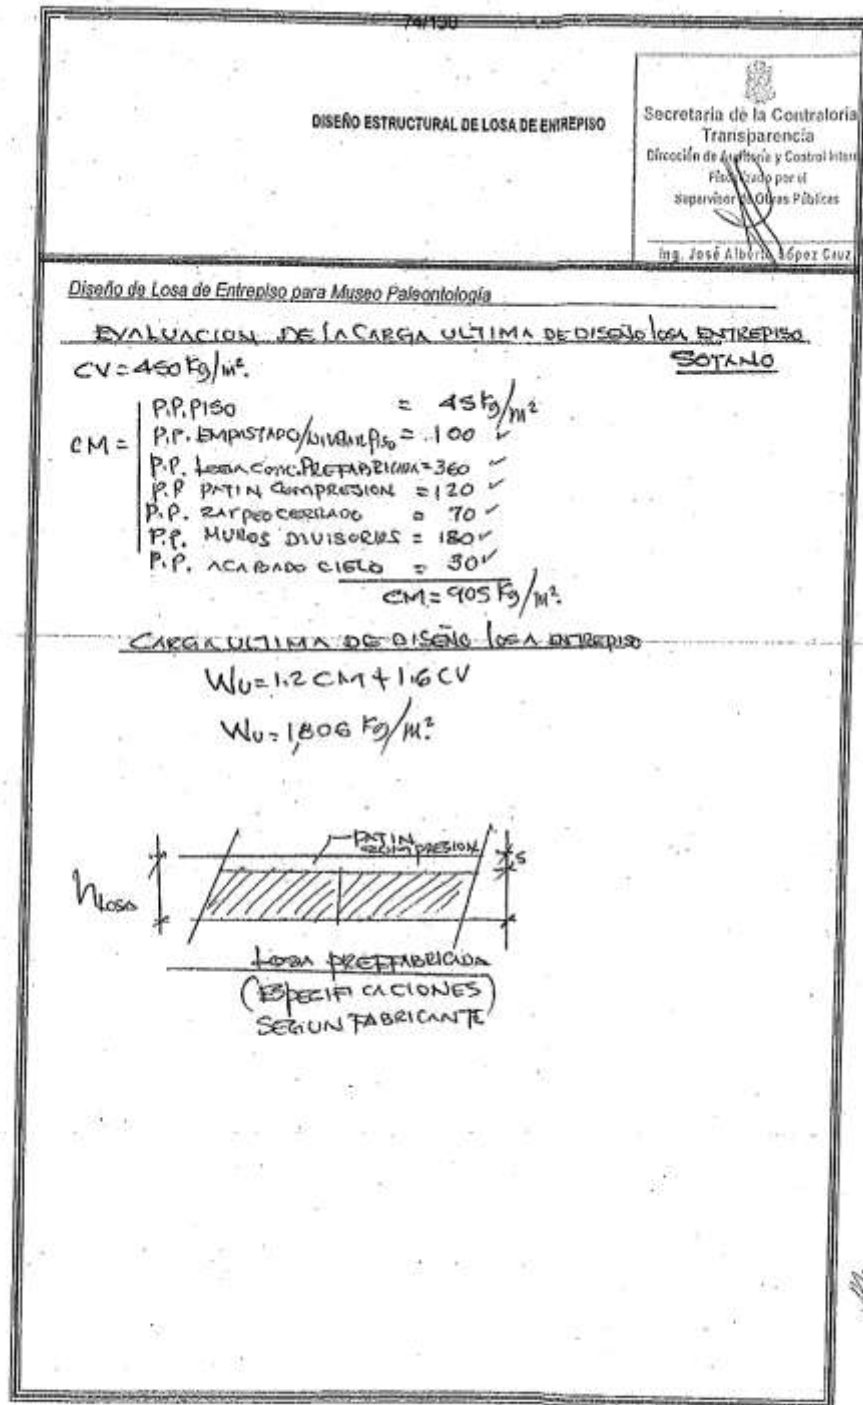 74/130
DISEÑO ESTRUCTURAL DE LOSA DE ENTREPISO
Secretaría de la Contraloría
Transparencia
Dirección de Auditoría y Control Intern
Fiscalizado por el
Supervisor de Obras Públicas
Ing. José Alberto López Cruz
Diseño de Losa de Entrepiso para Museo Paleontología
EVALUACION DE LA CARGA ULTIMA DE DISEÑO LOSA ENTREPISO
SOTANO
CV = 450 Kg/m².
CM =
P.P. PISO = 45 Kg/m²
P.P. EMPASTADO/ = 100 ✓
P.P. LOSA CONC. PREFABRICADA = 360 ✓
P.P PATIN COMPRESION = 120 ✓
P.P. CERRADO = 70 ✓
P.P. MUROS DIVISORIOS = 180 ✓
P.P. ACABADO CIELO = 30 ✓
CM = 905 Kg/m².
CARGA ULTIMA DE DISEÑO LOSA ENTREPISO
Wu = 1.2 CM + 1.6 CV
Wu = 1,806 Kg/m².
PATIN
COMPRESION
5
h LOSA
LOSA PREFFABRICADA
(ESPECIFICACIONES)
SEGUN FABRICANTE